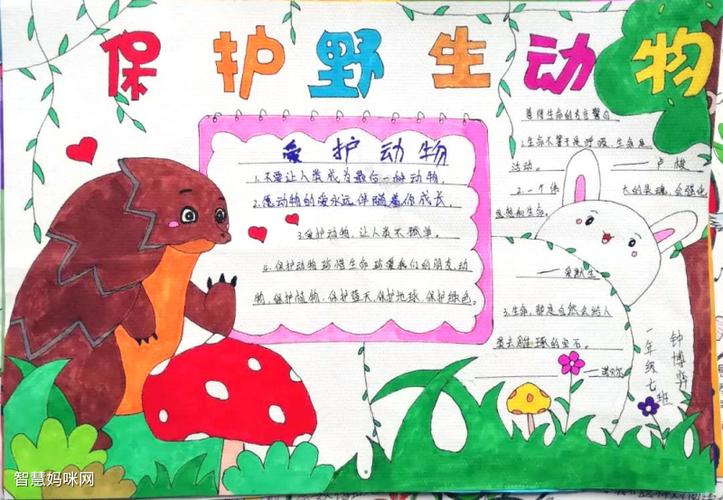 保护野生动物
爱护动物
1.不要让人类成为最后一种动物.
2.愿动物的爱永远伴随着你成长.
3.爱护动物,让人类不孤单.
4.保护动物珍惜生命珍爱我们的朋友,动
物,保护植物,保护蓝天,保护地球,保护绿色.
善待生命的名言警句
1.生命不等于是呼吸,生命是
活动。——卢梭
2.一个伟大的灵魂,会强化
思想和生命.
——爱默生
3.生命,那是自然会给人
类去雕琢的宝石.
——诺贝尔
一年级七班
钟博
智慧妈咪网